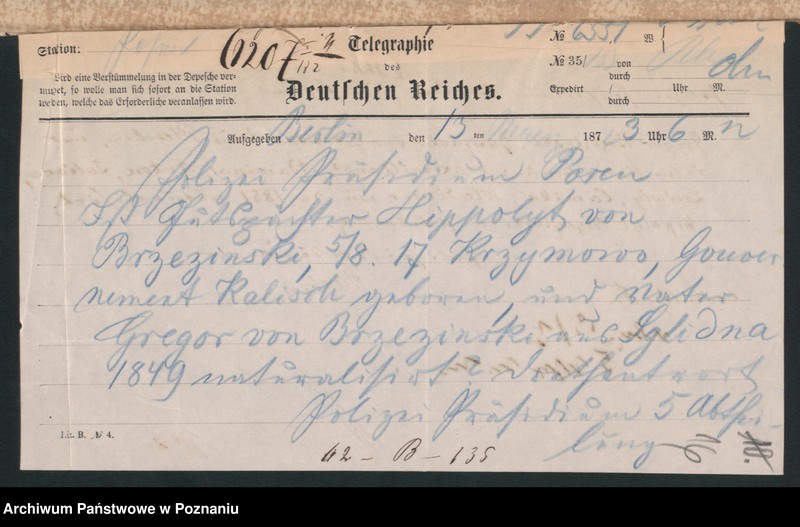 Station: Posen
6207 Telegraphie
des
Deutschen Reiches.
Wird eine Verstümmelung in der Depesche ver-
muthet, so wolle man sich sofort an die Station
wenden, welche das Erforderliche veranlassen wird.
№ 6551 W.
№ 35/ von
durch
Expedirt / Uhr M.
durch
Aufgegeben Berlin den 13 ten 187 3 Uhr 6 M. N
Polizei Präsidium Posen
Ist Gutspächter Hippolyt von
Brzezinski, 5/8. 17 Krzymowo, Gouver
nement Kalisch geboren, und Vater
Gregor von Brzezinski aus
1849 naturalisirt. Drathantwort
Polizei Präsidium 5 Abthei-
lung
Lit. B. № 4.
62 - B - 135
16
18.
Archiwum Państwowe w Poznaniu